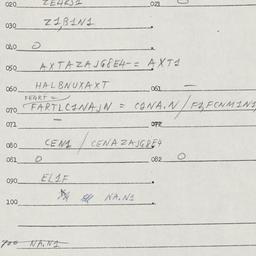 020 ZE4KS1 021
030 Z1,B1N1
040 O
050 AXTAZAJG8E4-= AXT1
060 HALBNUXAXT 061 -
FEART
070 FARTLC1NAJN = C1NA.N / F1,FCNM1N1
071 - 072
080 CEN1 / CENAZAJG8E4
081 O 082 O
090 EL1F
100 NA.N1
700 NA.N1